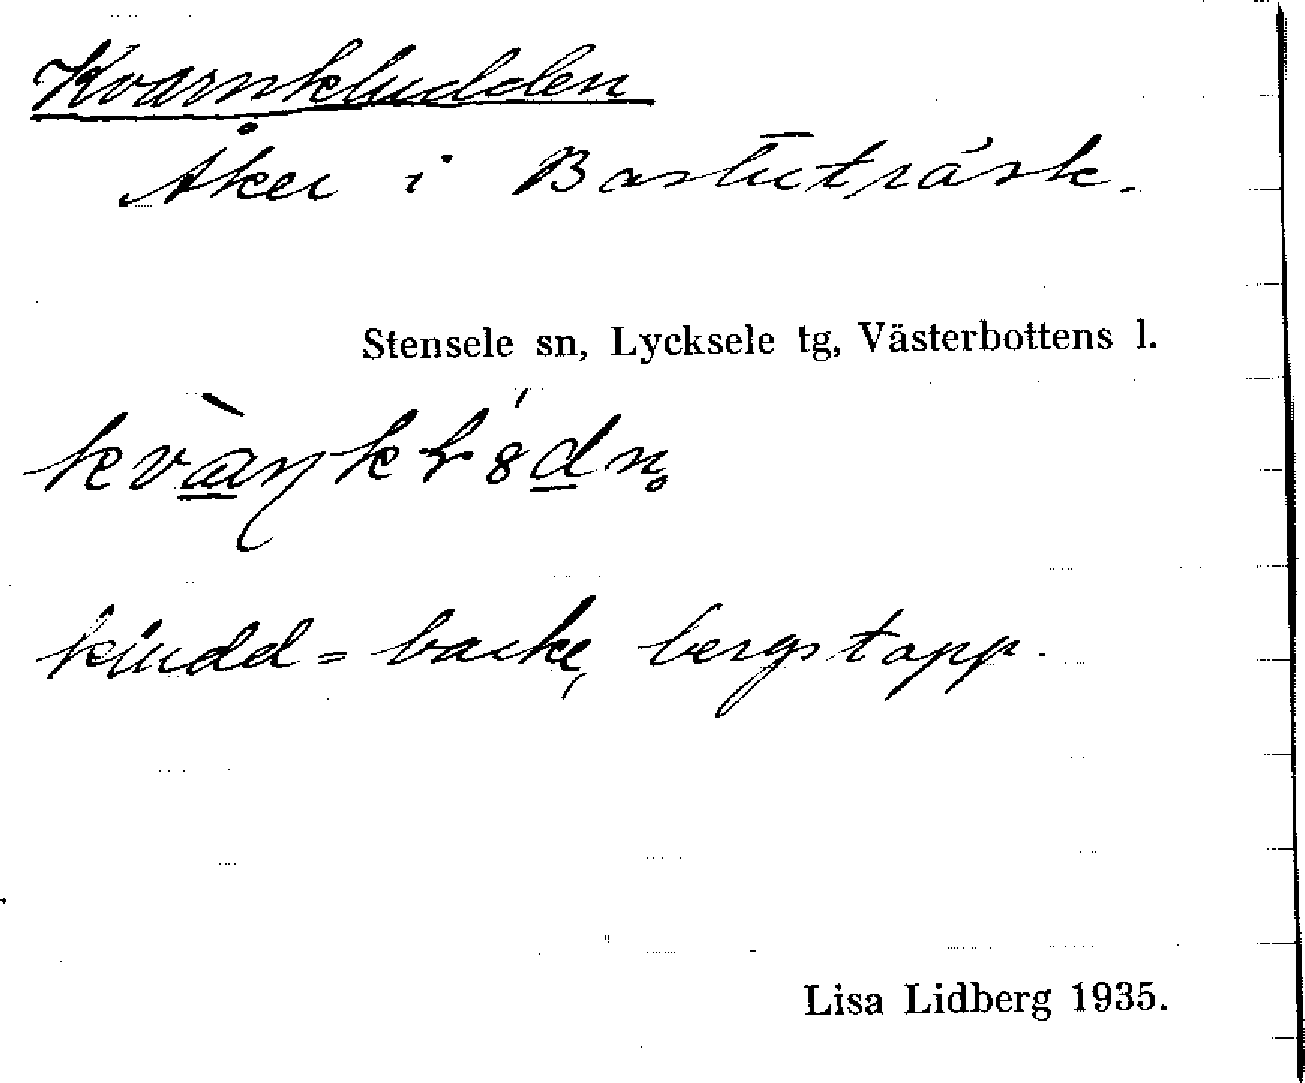 Kvarnkludden
Åker i Bastuträsk.
Stensele sn, Lycksele tg, Västerbottens l.
kludd = backe, bergstapp.
Lisa Lidberg 1935.